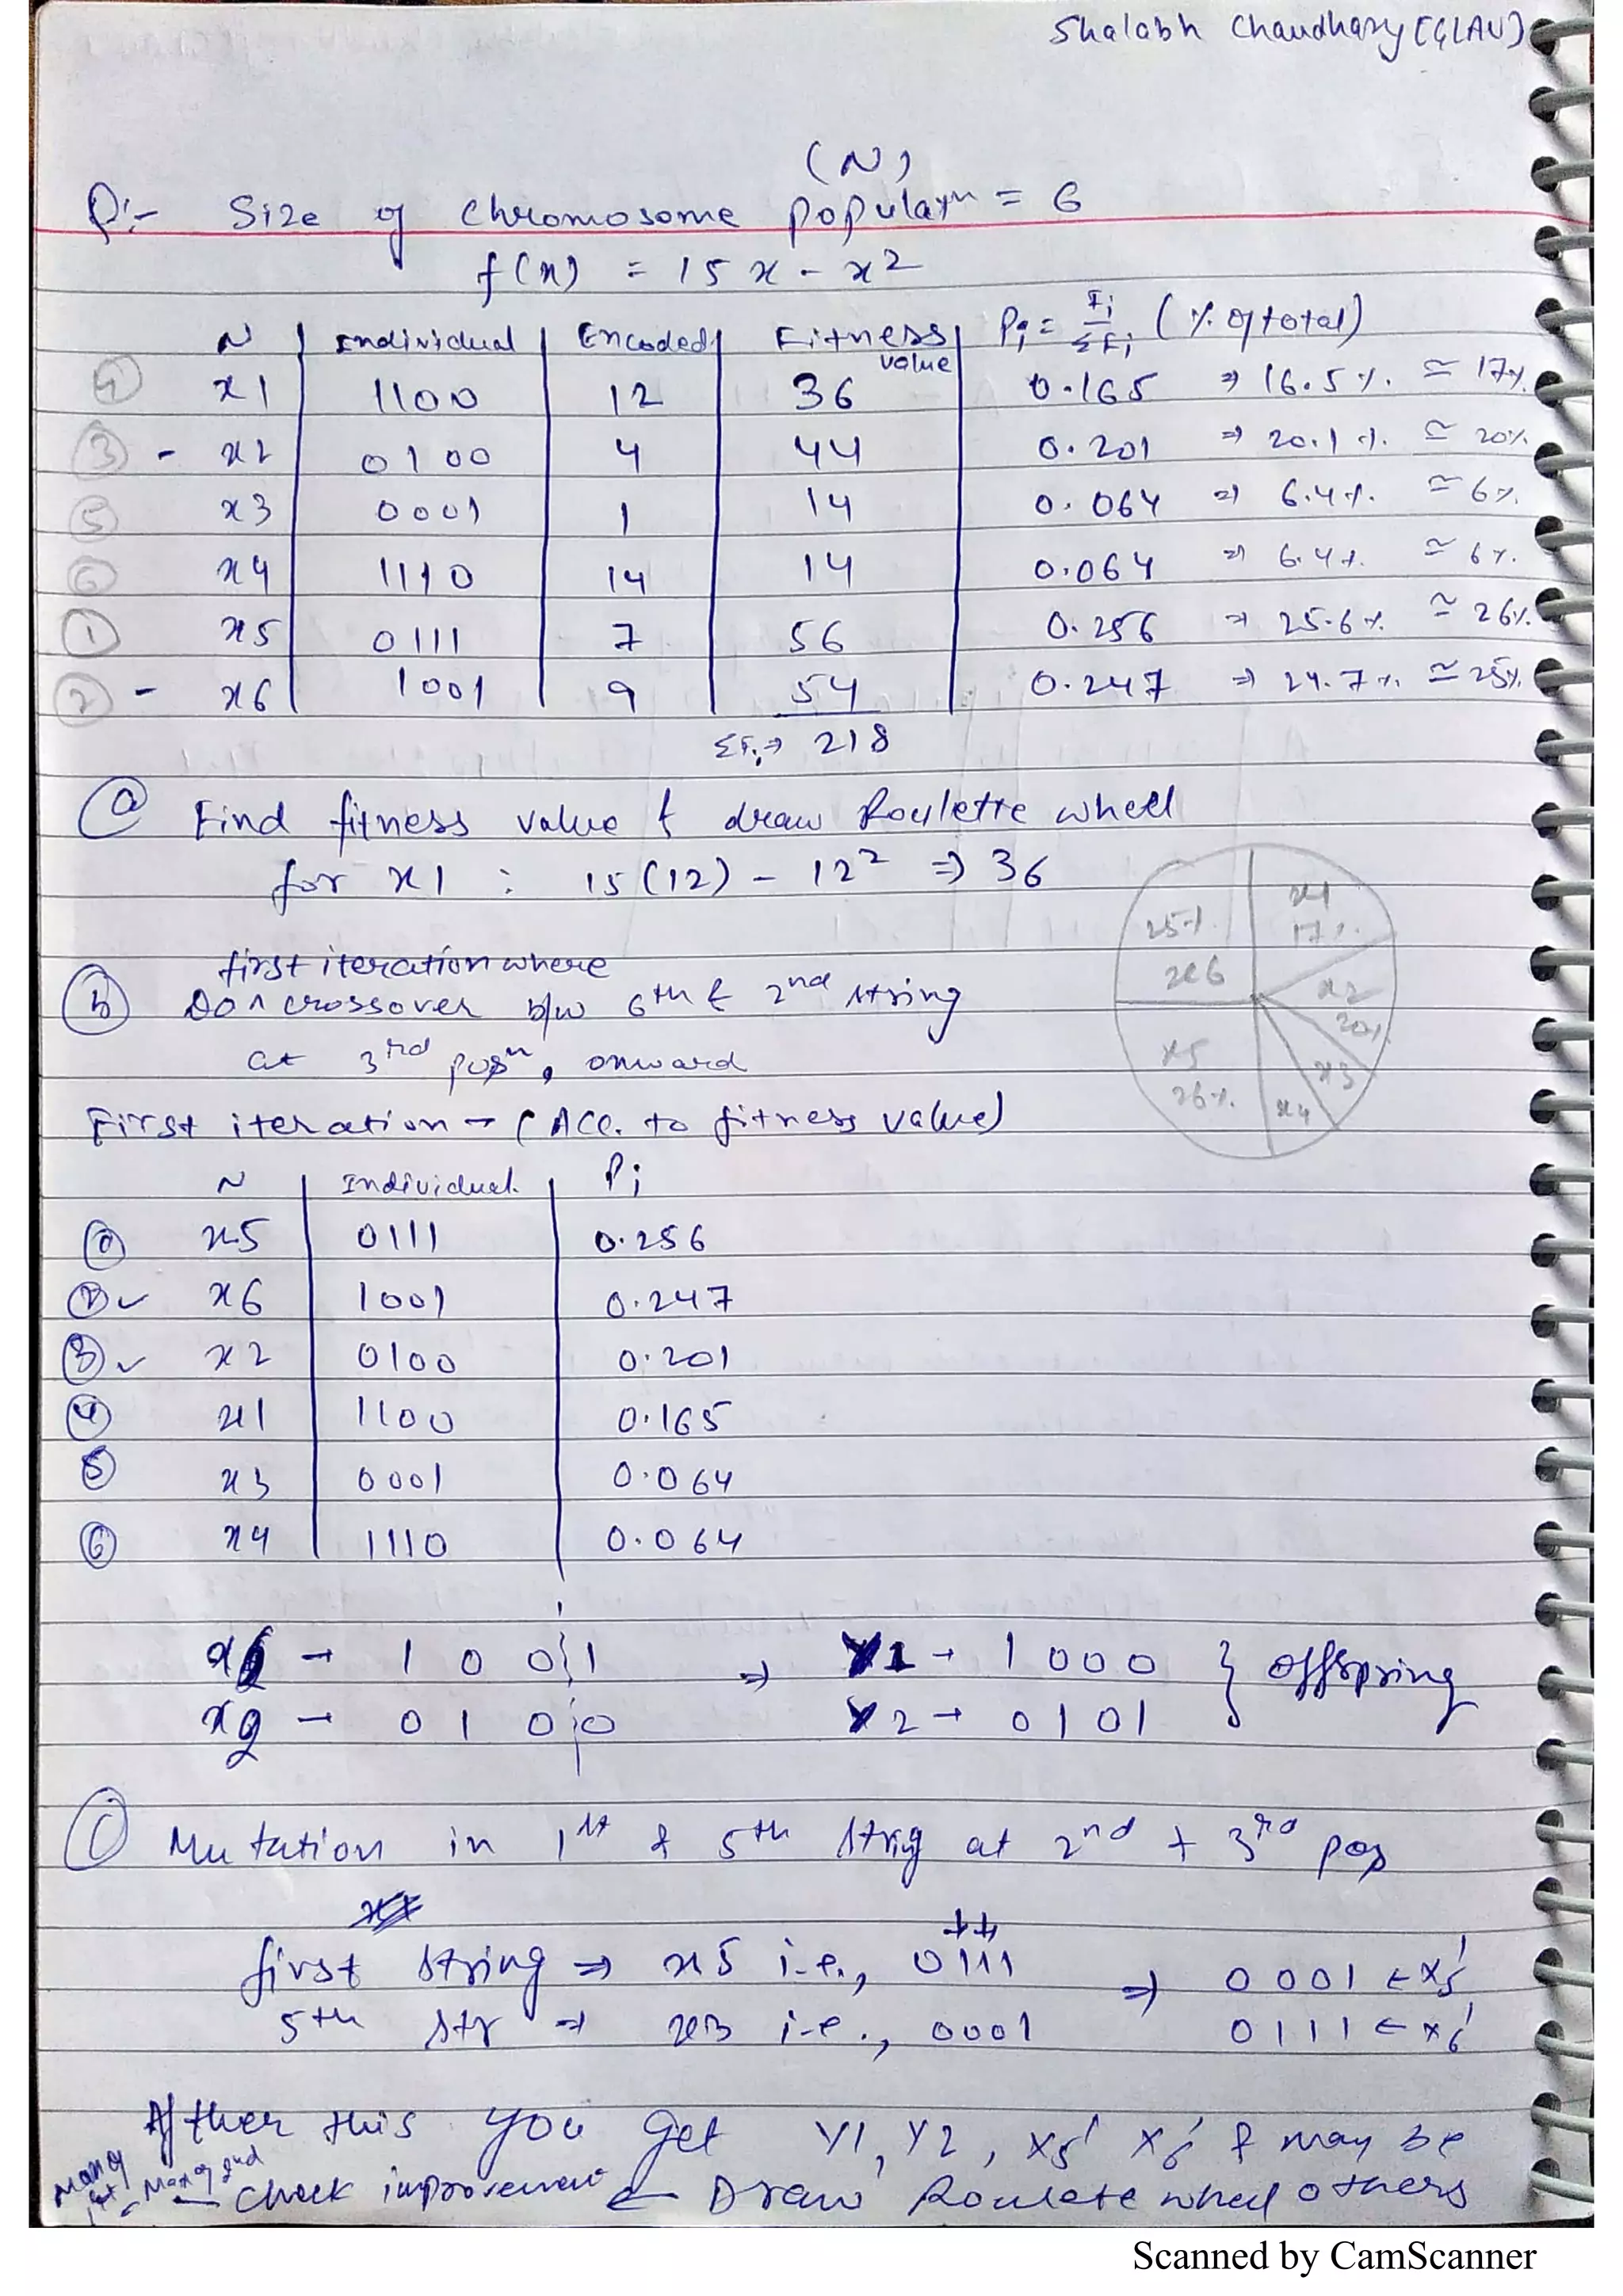 Shalabh Chaudhary [GLAU]
(N)
Q:- Size of chromosome populaxn = 6
f(x) = 15x - x2
N Individual Encoded Fitness value Pi = Fi/ΣFi (% of total)
④ x1 1100 12 36 0.165 ⇒ 16.5% ≃ 17%
③ - x2 0100 4 44 0.201 ⇒ 20.1% ≃ 20%
⑤ x3 0001 1 14 0.064 ⇒ 6.4% ≃ 6%
⑥ x4 1110 14 14 0.064 ⇒ 6.4% ≃ 6%
① x5 0111 7 56 0.256 ⇒ 25.6% ≃ 26%
② - x6 1001 9 54 0.247 ⇒ 24.7% ≃ 25%
ΣFi ⇒ 218
ⓐ Find fitness value & draw Roulette wheel
for x1 : 15(12) - 12² ⇒ 36
x1
17%
25%
x6
x2
20%
x5
26%
x3
x4
first iteration where
ⓑ Do ^ crossover b/w 6th & 2nd string
at 3rd posn, onward
First iteration → (Acc. to fitness value)
N Individual Pi
① x5 0111 0.256
② ✓ x6 1001 0.247
③ ✓ x2 0100 0.201
④ x1 1100 0.165
⑤ x3 0001 0.064
⑥ x4 1110 0.064
x6 → 1 0 0 1 ⇒ Y1 → 1 0 0 0 } offspring
x2 → 0 1 0 0 Y2 → 0 1 0 1
ⓒ Mutation in 1st & 5th strig at 2nd + 3rd pos
first string ⇒ x5 i.e., 0111 ⇒ 0001 ← X5'
5th str ⇒ x3 i.e., 0001 0111 ← X6'
After this you get Y1, Y2, X5' X6' & may be
← check improvement ← Draw Roulete wheel others
Scanned by CamScanner